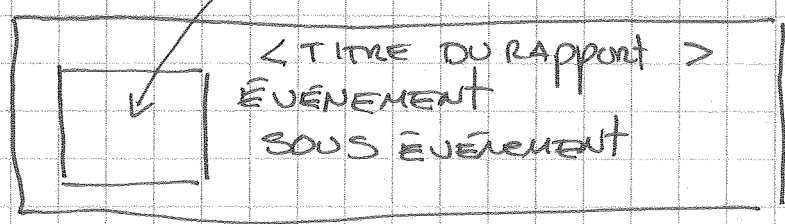 < TITRE DU RAPPORT >
ÉVÉNEMENT
SOUS ÉVÉNEMENT